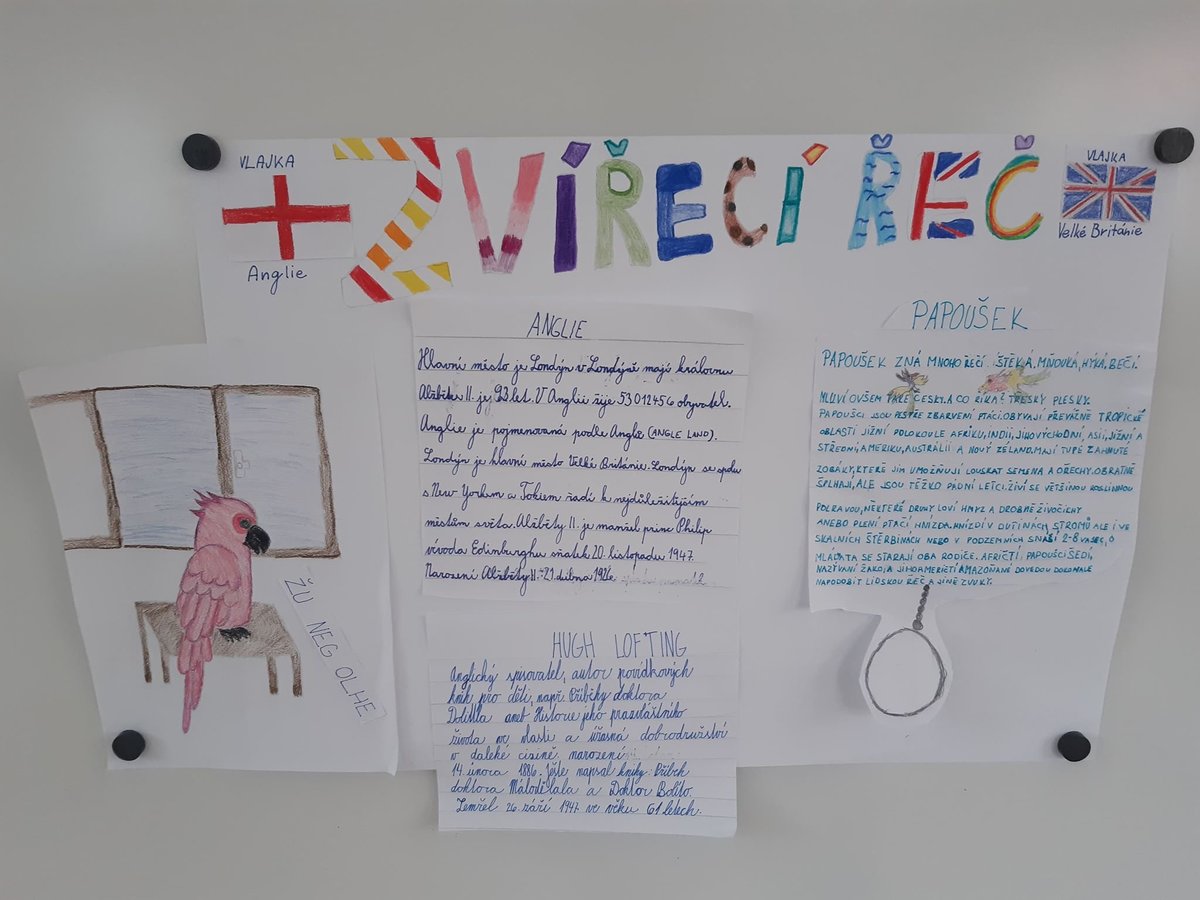 VLAJKA
Anglie
ZVÍŘECÍ ŘEČ
VLAJKA
Velké Británie
ANGLIE
Hlavní město je Londýn v Londýně mají královnu
Alžbětu II. jej 92 let. V Anglii žije 53 012 456 obyvatel.
Anglie je pojmenovaná podle Anglů (ANGLE LAND).
Londýn je hlavní město Velké Británie. Londýn se spolu
s New Yorkem a Tokiem řadí k nejdůležitějším
městům světa. Alžběty II. je manžel princ Philip
vévoda Edinburghu sňatek 20. listopadu 1947.
Narození Alžběty II. - 21. dubna 1926
HUGH LOFTING
Anglický spisovatel, autor povídkových
knih pro děti, např. Příběhy doktora
Dolittla aneb Historie jeho prazvláštního
života ve vlasti a úžasná dobrodružství
v daleké cizině narození
14. února 1886. Ješte napsal knihy: Příběh
doktora Málodělala a Doktor Bolíto.
Zemřel 26. září 1947 ve věku 61 letech.
PAPOUŠEK
PAPOUŠEK ZNÁ MNOHO ŘEČÍ. ŠTĚKÁ, MŇOUKÁ, HÝKÁ, BEČÍ.
MLUVÍ OVŠEM TAKÉ ČESKY. A CO ŘÍKÁ? TŘESKY PLESKY.
PAPOUŠCI JSOU PESTŘE ZBARVENÍ PTÁCI. OBÝVAJÍ PŘEVÁŽNĚ TROPICKÉ
OBLASTI JIŽNÍ POLOKOULE AFRIKU, INDII, JIHOVÝCHODNÍ, ASII, JIŽNÍ A
STŘEDNÍ, AMERIKU, AUSTRÁLII A NOVÝ ZÉLAND. MAJÍ TUPÉ ZAHNUTÉ
ZOBÁKY, KTERÉ JIM UMOŽŇUJÍ LOUSKAT SEMENA A OŘECHY. OBRATNĚ
ŠPLHAJÍ, ALE JSOU TĚŽKO PÁDNÍ LETCI. ŽIVÍ SE VĚTŠINOU ROSTLINNOU
POTRAVOU, NĚKTERÉ DRUHY LOVÍ HMYZ A DROBNÉ ŽIVOČICHY
ANEBO PLENÍ PTAČÍ HNÍZDA. HNÍZDÍ V DUTINÁCH STROMŮ ALE I VE
SKALNÍCH ŠTĚRBINÁCH NEBO V PODZEMNÍCH SNÁŠÍ 2-8 VAJEC, O
MLÁĎATA SE STARAJÍ OBA RODIČE. AFRIČTÍ PAPOUŠCI ŠEDÍ,
NAZÝVANÍ ŽAKO, A JIHOAMERIČTÍ AMAZOŇANÉ DOVEDOU DOKONALE
NAPODOBIT LIDSKOU ŘEČ A JINÉ ZVUKY.
ŽU NEG OLHE.